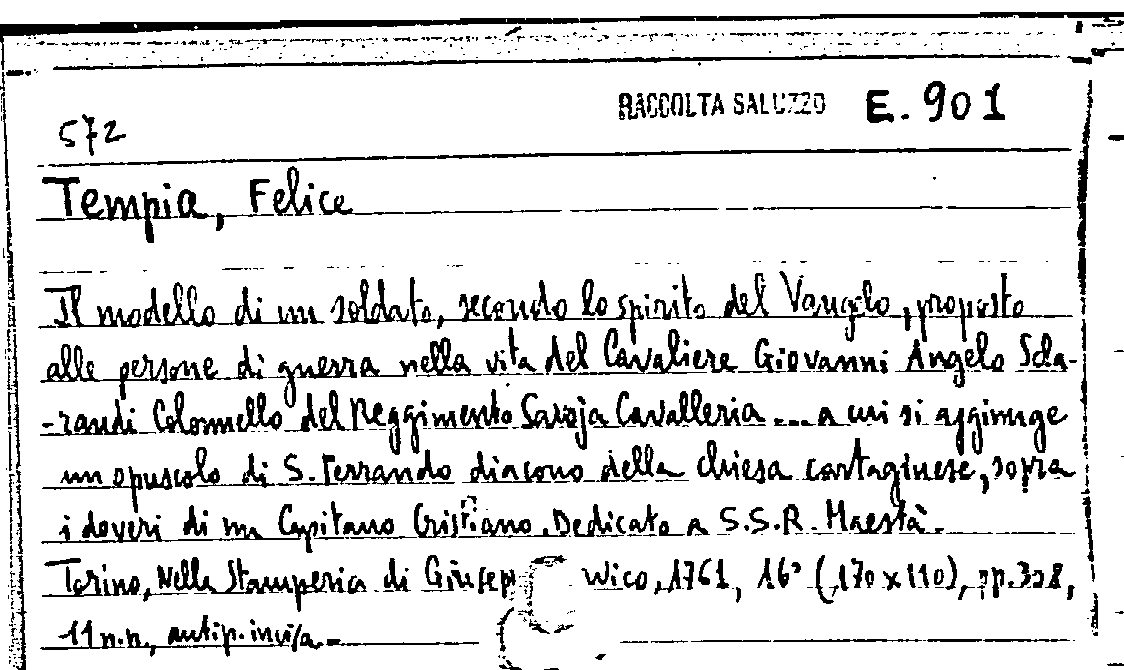 RACCOLTA SALUZZO E. 901
572
Tempia, Felice
Il modello di un soldato, secondo lo spirito del Vangelo, proposto
alle persone di guerra nella vita del Cavaliere Giovanni Angelo Scla-
-randi Colonnello del Reggimento Savoja Cavalleria ... a cui si aggiunge
un opuscolo di S. Ferrando diacono della chiesa cartaginese, sopra
i doveri di un Capitano Cristiano. Dedicato a S.S.R. Maestà.
Torino, Nella Stamperia di 1761, 16° (170 x 110), pp.
11 n.n., antip. incisa.-